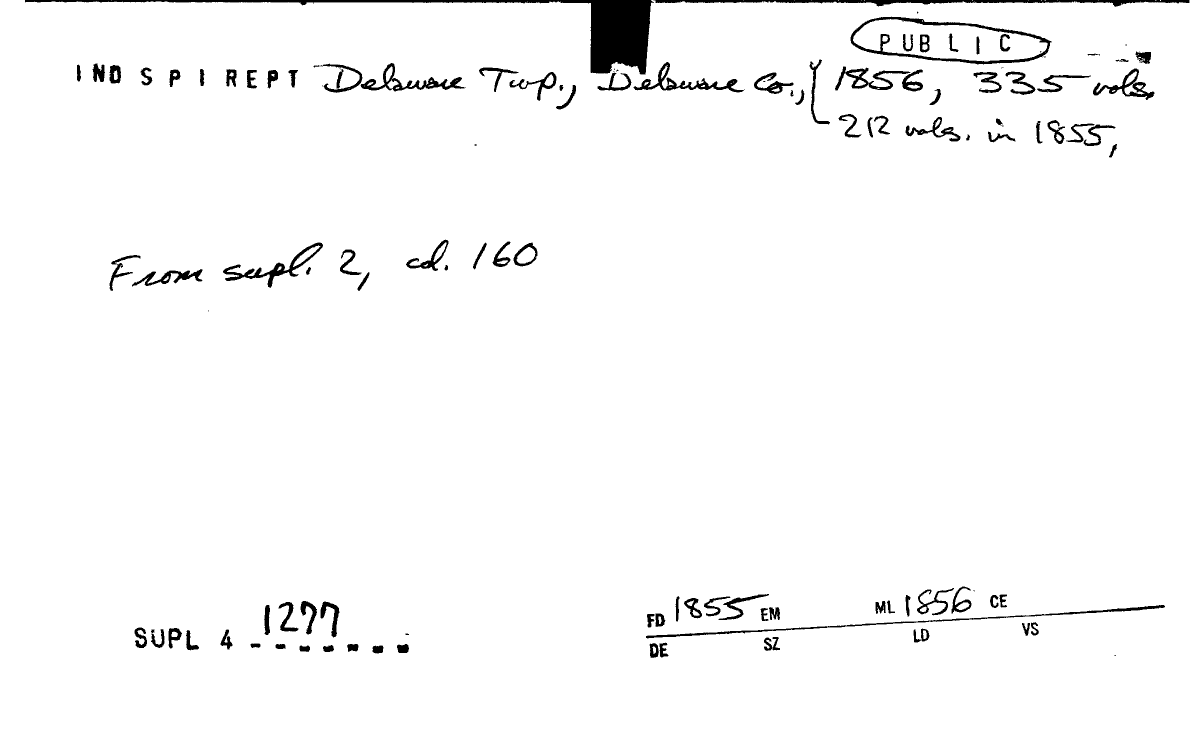 PUBLIC
INDSPIREPT Delaware Twp., Delaware Co., 1856, 335 vols.
212 vols. in 1855,
From supl. 2, cd. 160
SUPL 4 1277
FD 1855 EM ML 1856 CE
DE SZ LD VS